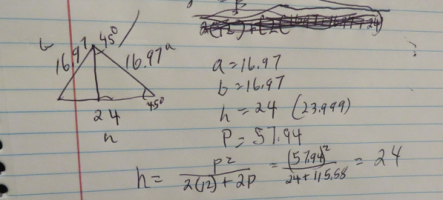 b 45° a
16.97 16.97
45°
24
h
a=16.97
b=16.97
h=24 (23.999)
P=57.94
h = P² / 2(12)+2P = (57.94)² / 24+115.88 = 24
?